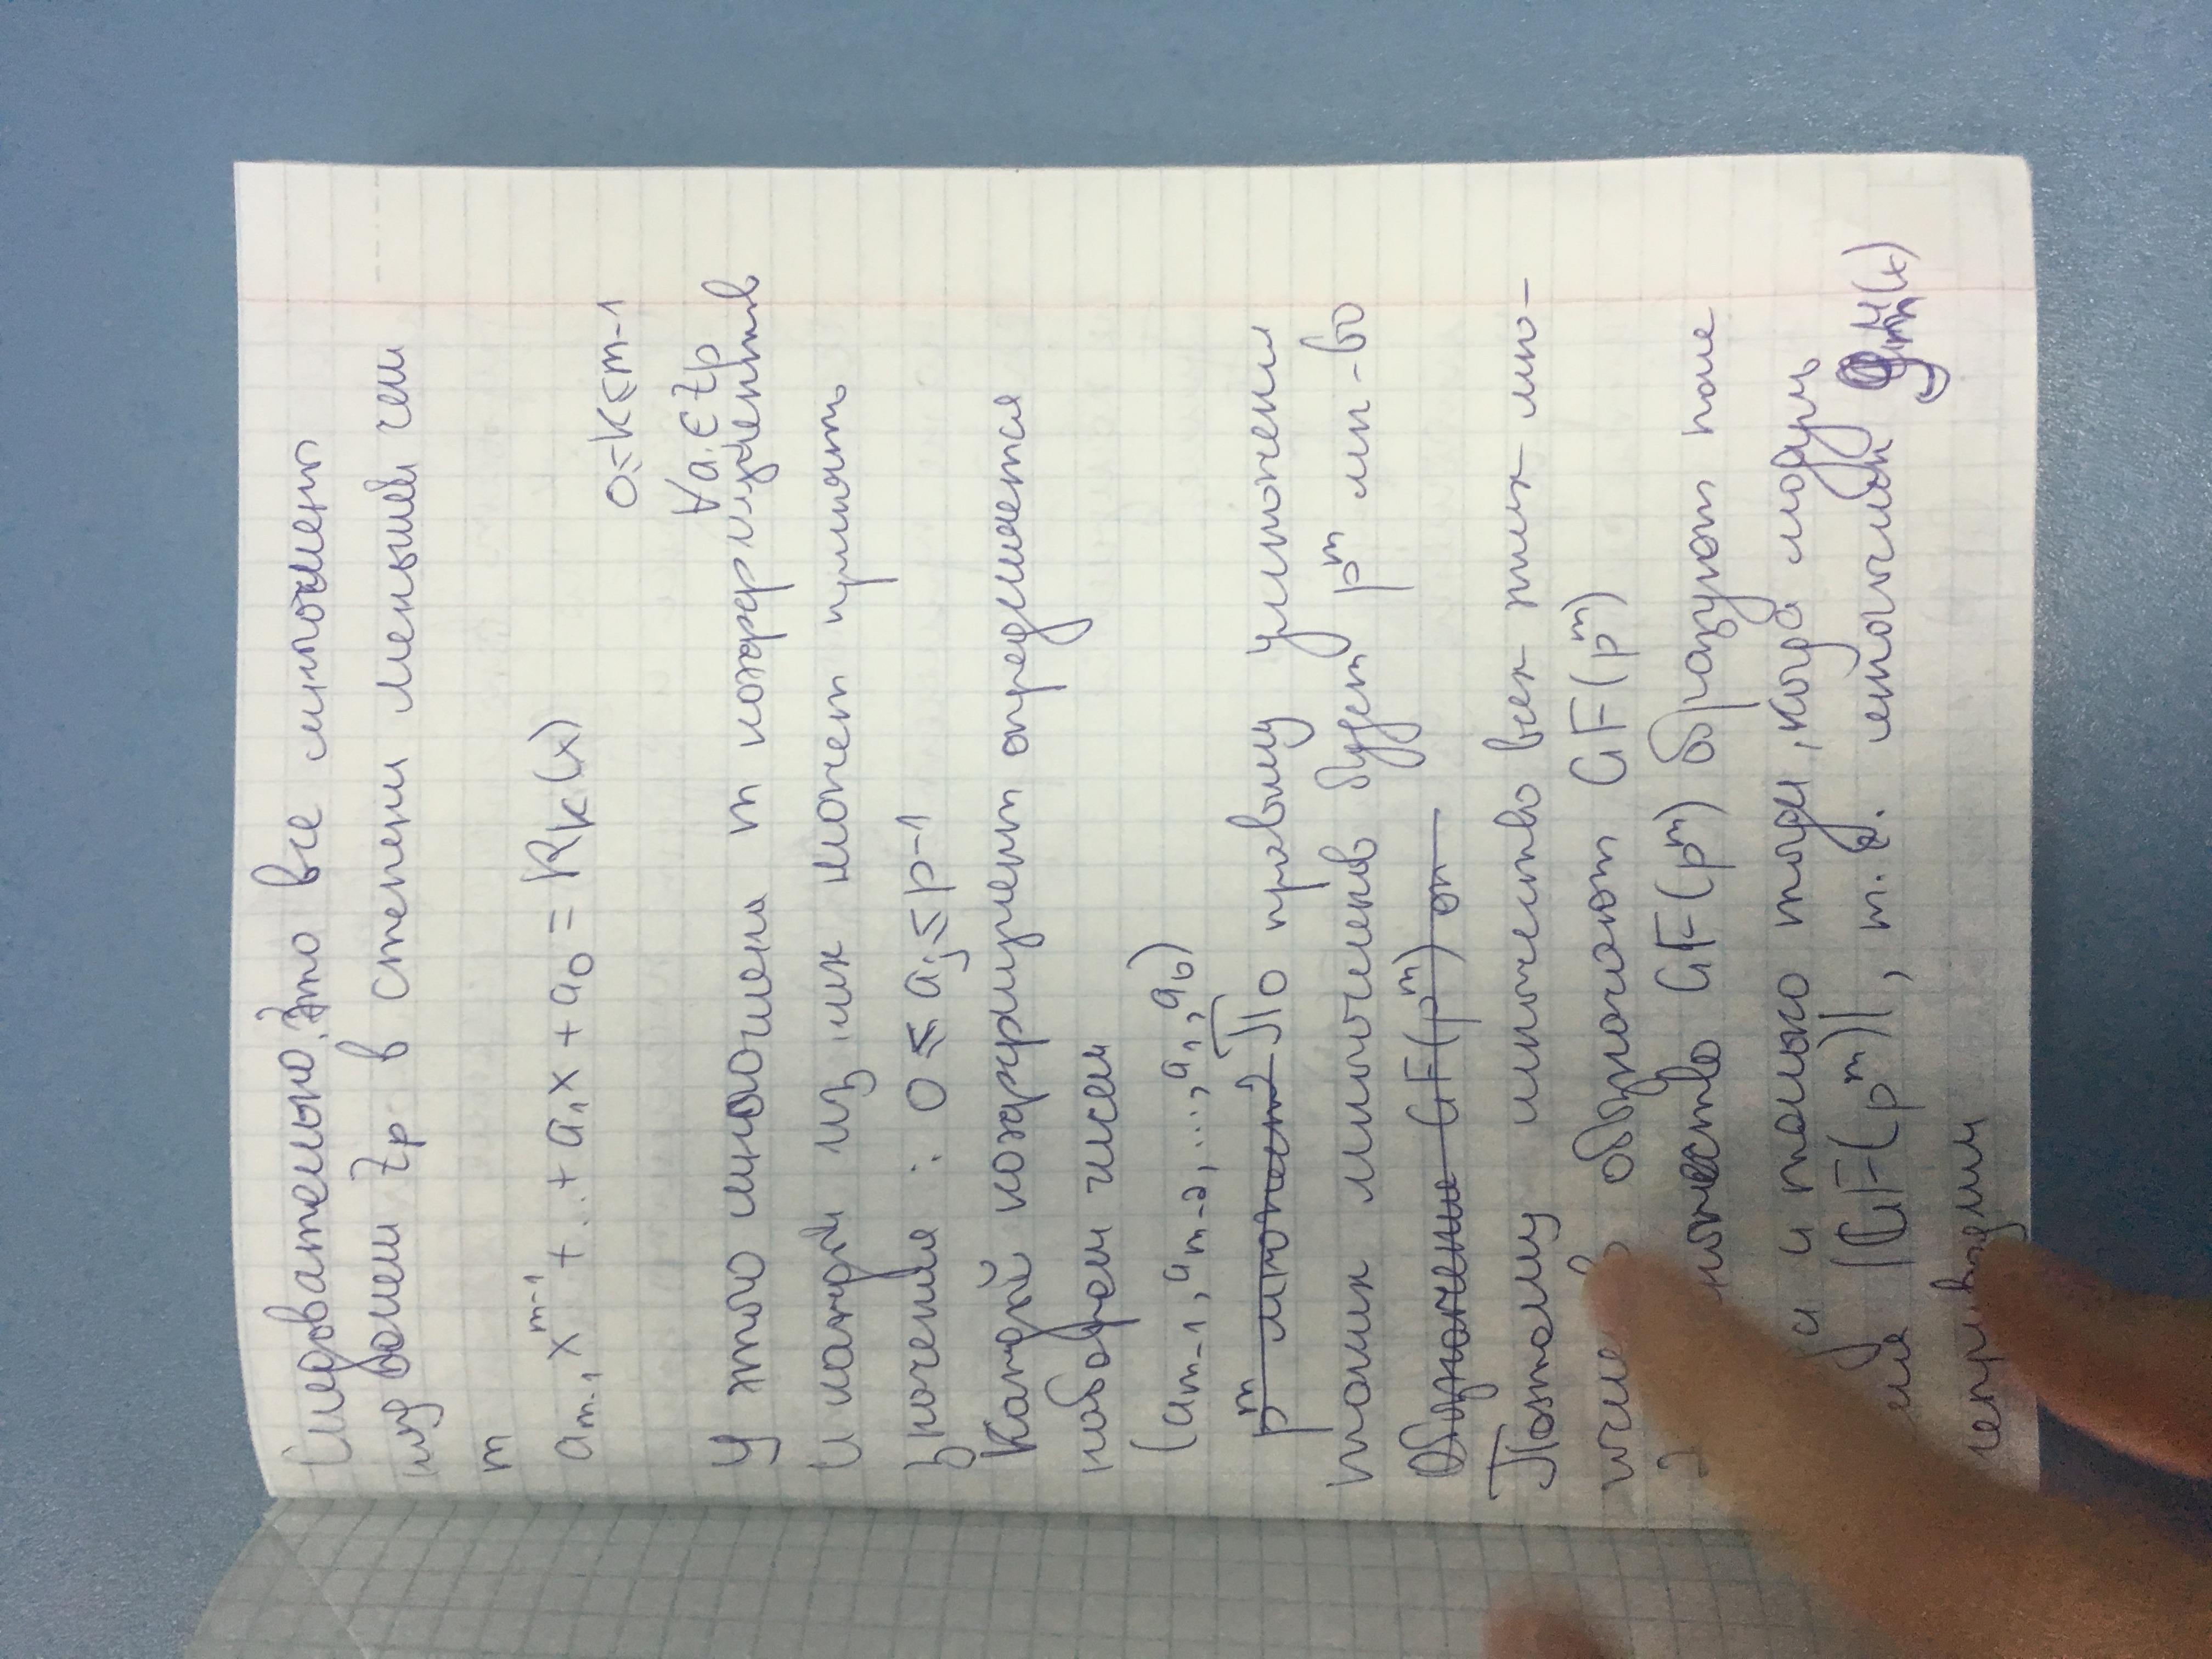 Следовательно, Это все многочлены
над полем Zp в степени меньшей чем
m
a_{m-1} x^{m-1} + ... + a_1 x + a_0 = R_k(x)
0 ≤ k ≤ m-1
∀a_i ∈ Zp
У этого многочлена m коэффициентов
и каждый из них может принять
значения : 0 ≤ a_j ≤ p-1
Каждый коэффициент определяется
набором чисел
(a_{m-1}, a_{m-2}, ..., a_1, a_0)
p^m множест По правилу умножения
таких многочленов будет p^m мн-во
Обозначение GF(p^m) оп
Поэтому множество всех этих мно-
обозначают GF(p^m)
2 GF(p^m) образуют поле
и только тогда, когда модуль
|GF(p^m)|, т.е. многочлен (x)
неприводим